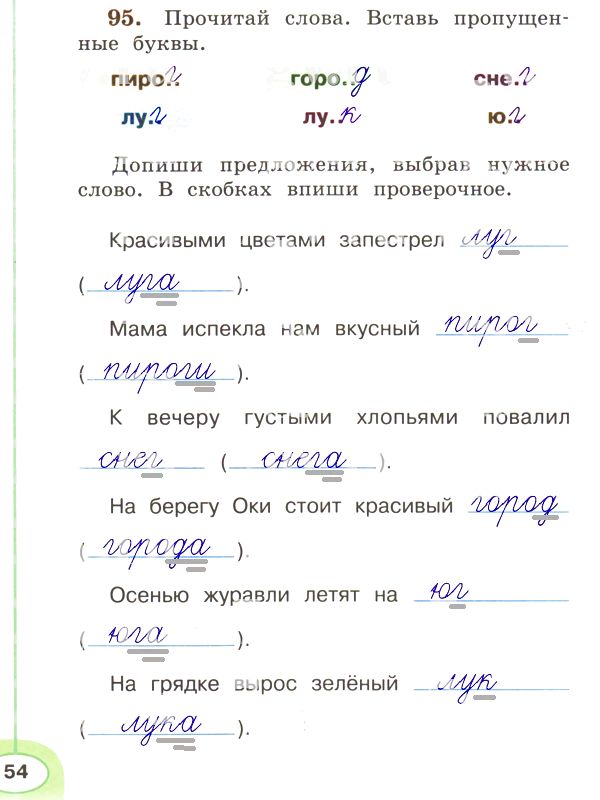 95. Прочитай слова. Вставь пропущен-
ные буквы.
пиро..г горо..д сне..г
лу..г лу..к ю..г
Допиши предложения, выбрав нужное
слово. В скобках впиши проверочное.
Красивыми цветами запестрел луг
(луга).
Мама испекла нам вкусный пирог
(пироги).
К вечеру густыми хлопьями повалил
снег (снега).
На берегу Оки стоит красивый город
(города).
Осенью журавли летят на юг
(юга).
На грядке вырос зелёный лук
(лука).
54